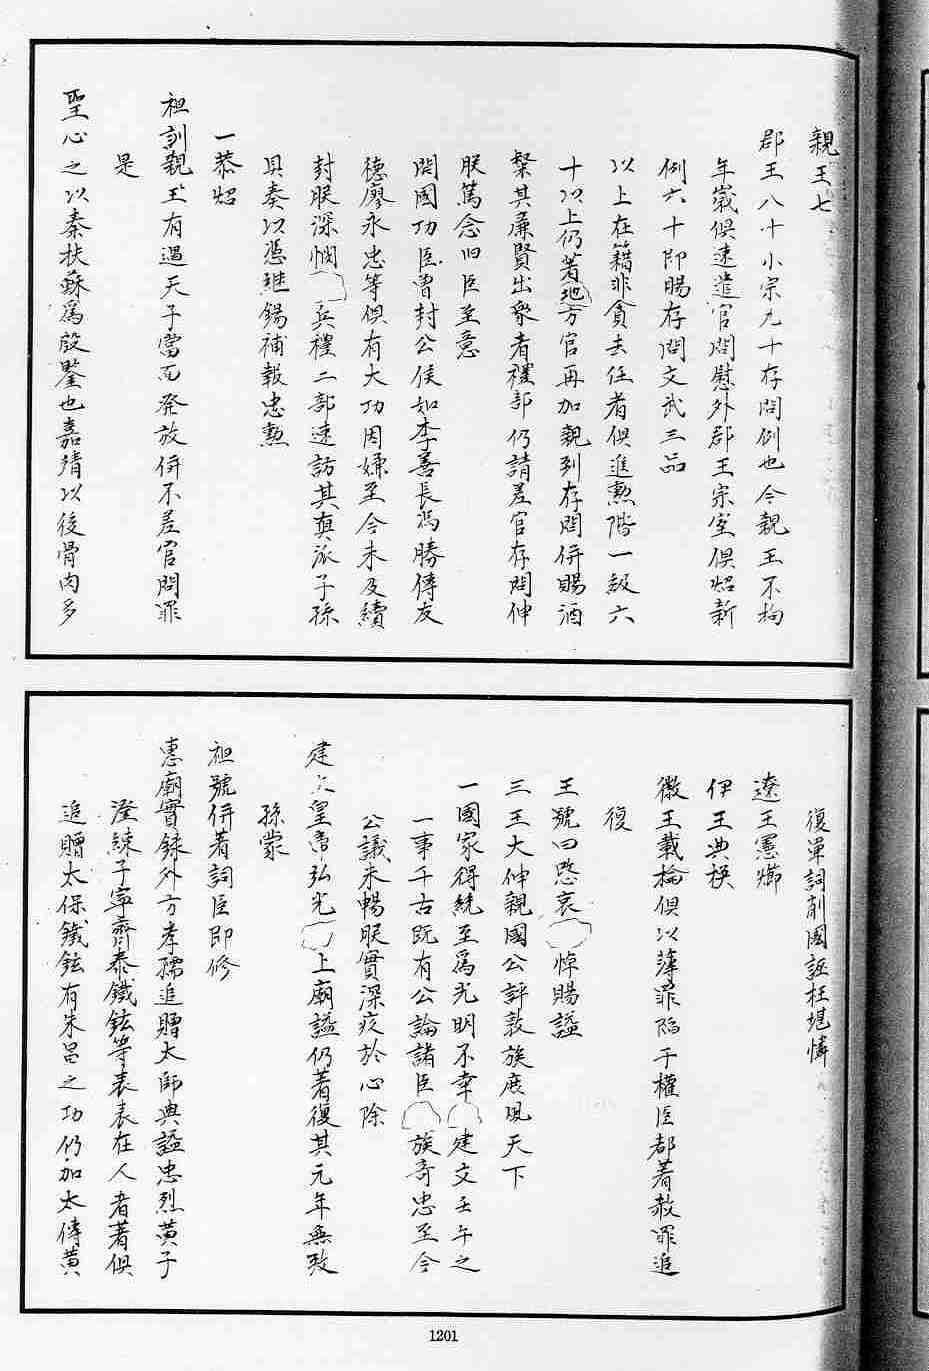 親王七
郡王八十小宗九十存問例也今親王不拘
年歲俱速遣官問慰外郡王宗室俱炤新
例六十即賜存問文武三品
以上在籍非貪去任者俱進勲階一級六
十以上仍著地方官再加親到存問併賜酒
粲其廉賢出衆者禮部仍請差官存問伸
朕篤念旧臣至意
開國功臣曾封公侯如李善長馮勝傅友
德廖永忠等俱有大功因嫌至今未及續
封朕深憫兵禮二部速訪其真派子孫
具奏以憑継錫補報忠勲
一恭炤
祖訓親王有過天子當面發放併不差官問罪
是
聖心之以秦扶蘇爲殷鑒也嘉靖以後骨肉多
復單詞削國誣枉堪憐
遼王憲㸅
伊王典楧
徽王載埨俱以薄罪陷于權臣都著赦罪追
復
王號曰愍哀悼賜謚
三王大伸親國公評敦族庶風天下
一國家得統至爲光明不幸建文壬午之
一事千古既有公論諸臣族奇忠至今
公議未暢朕實深疚於心除
建文皇帝弘光上廟謚仍著復其元年無致
孫蒙
祖號併著詞臣即修
惠廟實錄外方孝孺追贈太師與謚忠烈黄子
澄練子寧齊泰鐵鉉等表表在人者著俱
追贈太保鐵鉉有朱邑之功仍加太傅黄
1201